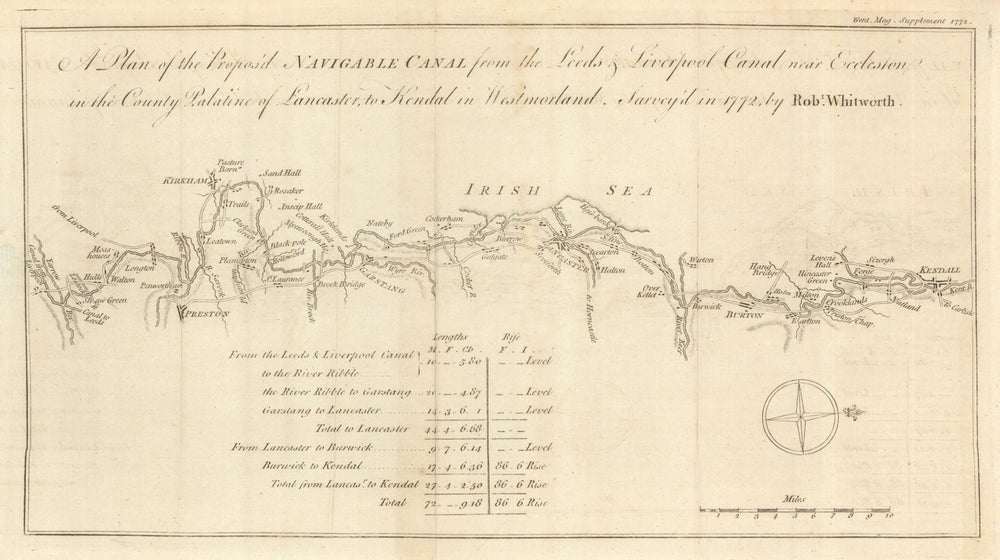 Gent. Mag. Supplement 1772.
A Plan of the Propos'd NAVIGABLE CANAL from the Leeds & Liverpool Canal near Eccleston
in the County Palatine of Lancaster, to Kendal in Westmorland. Survey'd in 1772, by Robt. Whitworth.
IRISH SEA
Pasture Barn
KIRKHAM
Sand Hall
Rosaker
Trails
Inscip Hall
Kirklands
Leatown
Black-pole
Hollowford
Plumpton
St Laurance
Brock Bridge
R. Brock
R. Savock
from Liverpool
Moss houses
Longton
Penwortham
PRESTON
Hall
Walton
Shaw Green
Canal to Leeds
Yarrow
Nateby
Ford Green
Cockerham
GARSTANG
Wyre Riv.
Cocker R.
Galgate
Burrow
LANCASTER
Scotforth
Hest bank
Scearton
Halton
to Horncastle
Bolton
Over Kellet
Warton
River Keer
Burwick
BURTON
Hang Bridge
Holm
Milton
Farlton
Crooklands
Preston Chap.
Levens Hall
Hincaster Green
Sizergh
Forge
Natland
KENDALL
Kent R.
to Carlisle
Lengths Rise
M. F. Ch. F. I.
From the Leeds & Liverpool Canal
to the River Ribble 10 - - 5.80 - - Level
the River Ribble to Garstang 20 - - 4.87 - - Level
Garstang to Lancaster 14 . 3 . 6 . 1 - - Level
Total to Lancaster 44 . 4 . 6.68 - - -
From Lancaster to Burwick 9 . 7 . 6.14 - - Level
Burwick to Kendal 17 . 4 . 6.36 86 . 6 Rise
Total from Lancasr. to Kendal 27 . 4 . 2.50 86 . 6 Rise
Total 72 - - 9.18 86 . 6 Rise
Miles
1 2 3 4 5 6 7 8 9 10